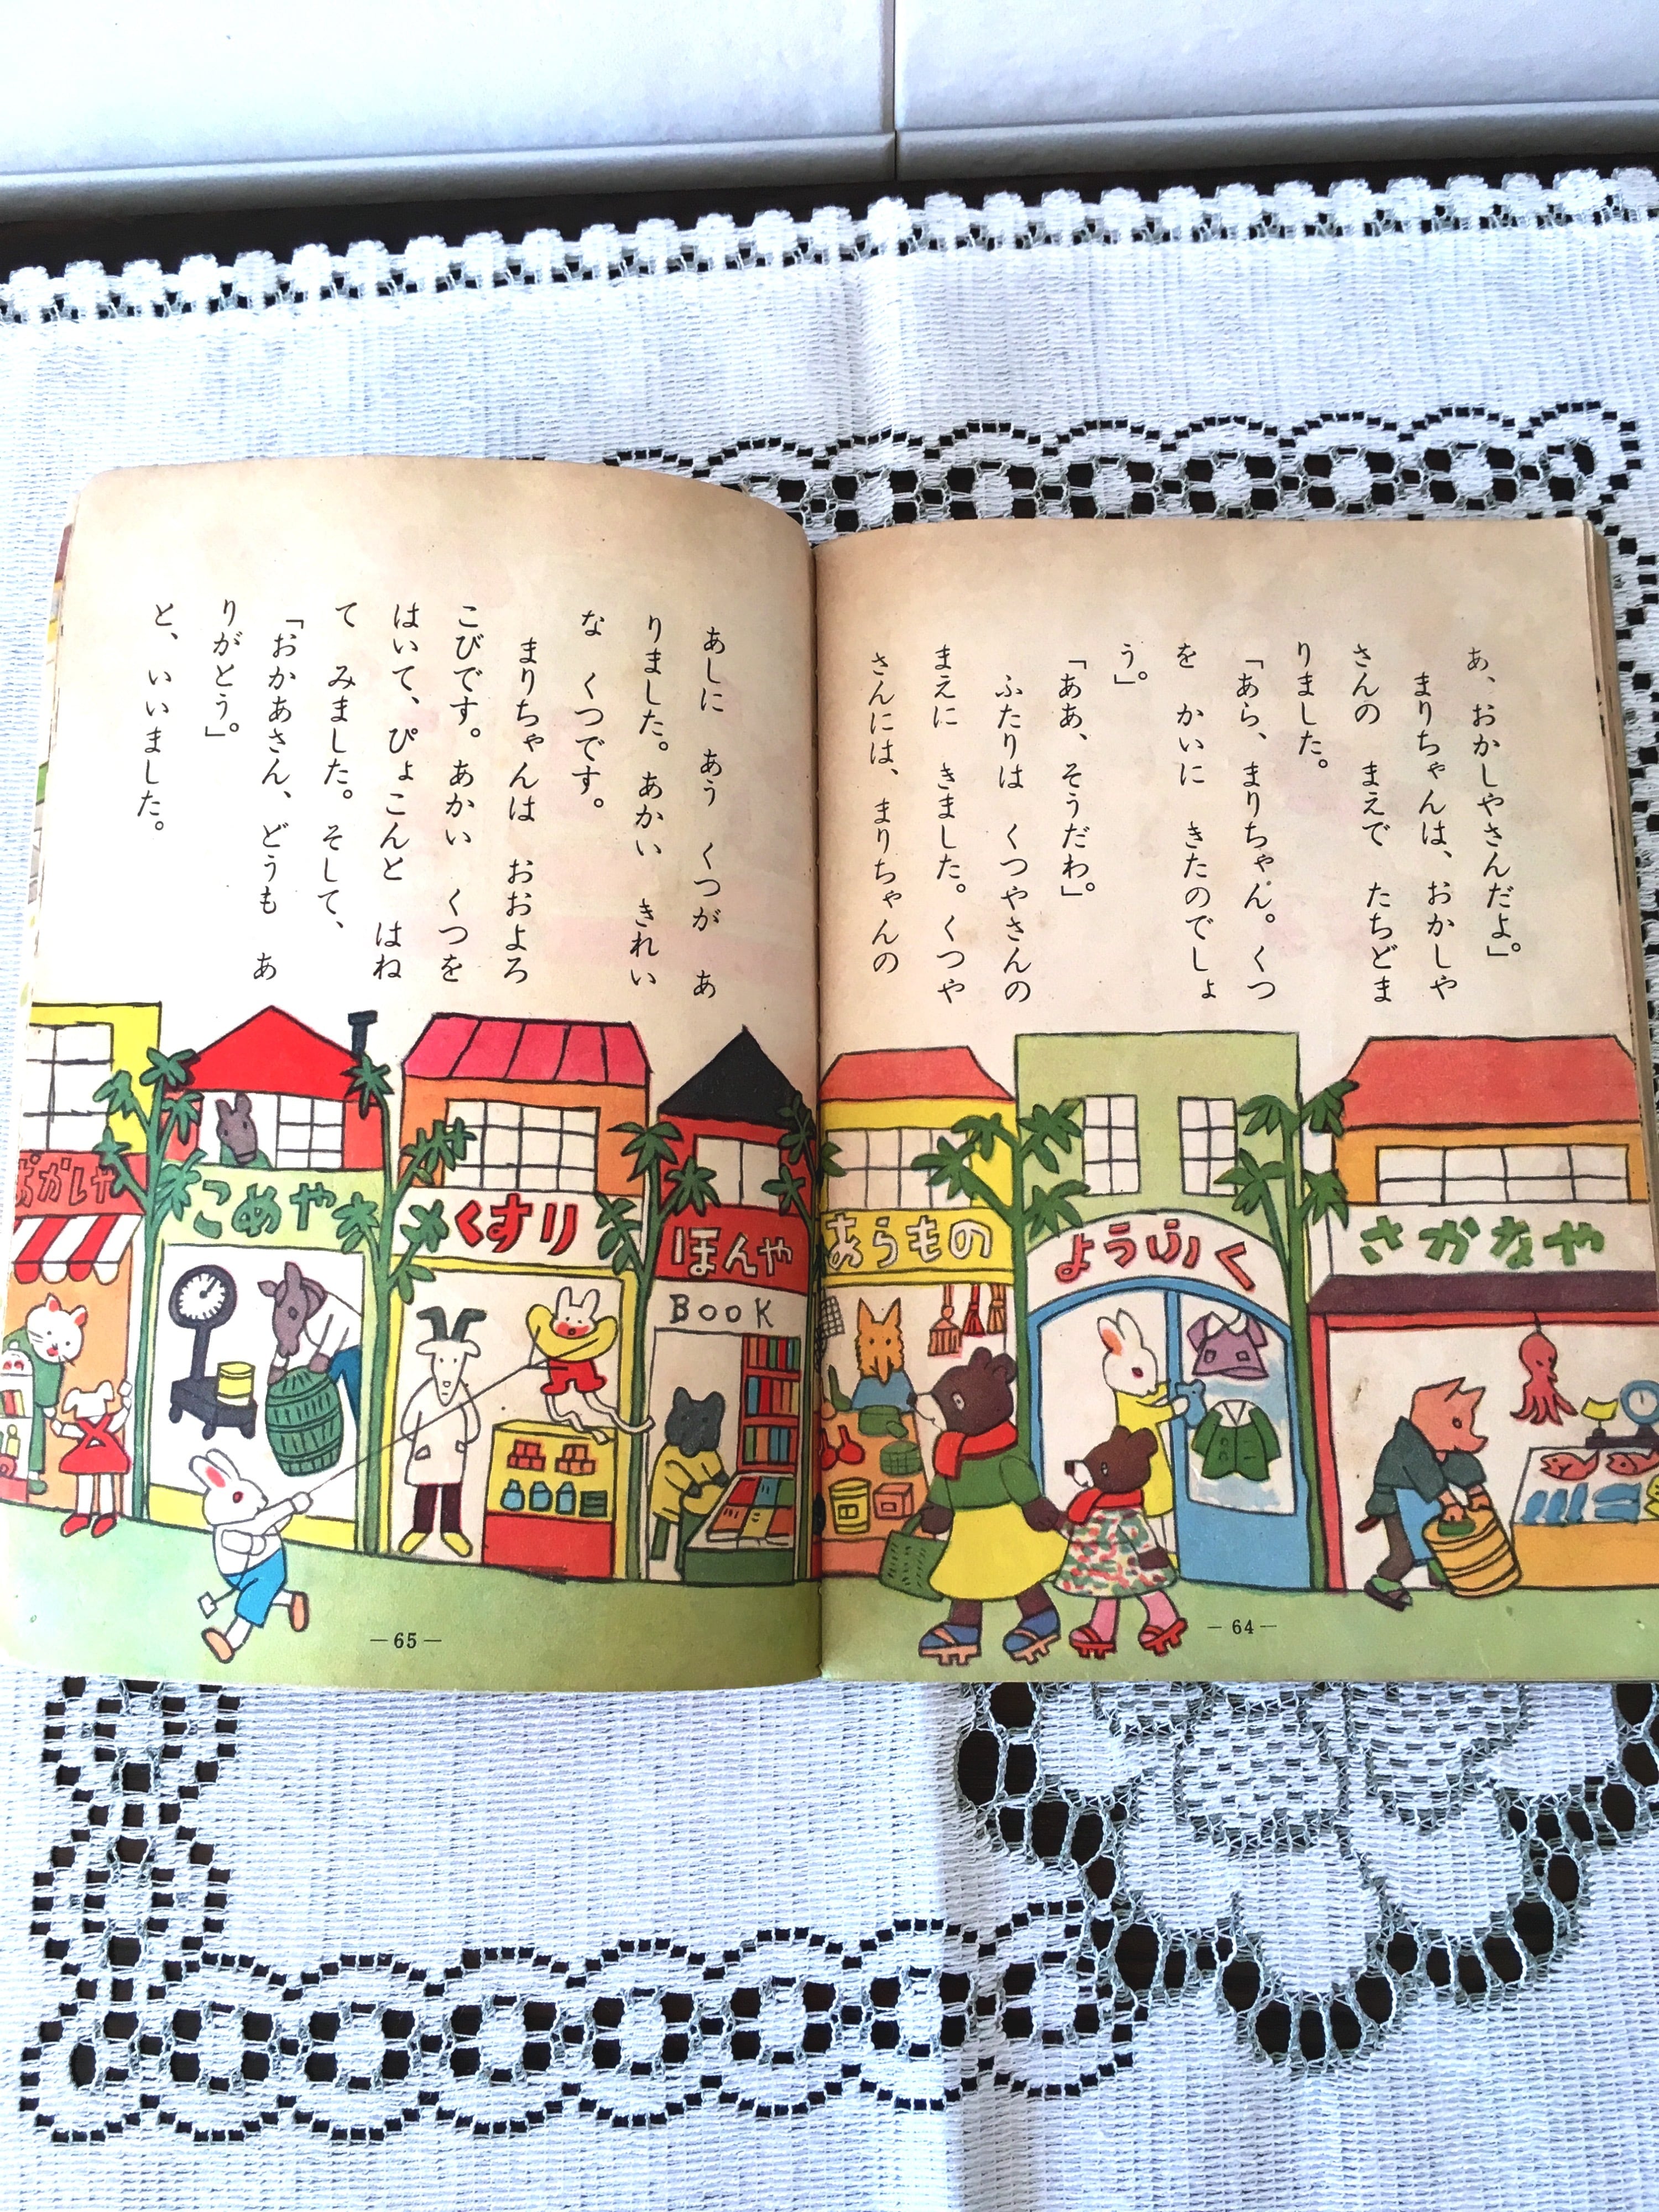 あ、おかしやさんだよ」。
まりちゃんは、おかしや
さんの　まえで　たちどま
りました。
「あら、まりちゃん。くつ
を　かいに　きたのでしょ
う」。
「ああ、そうだわ」。
ふたりは　くつやさんの
まえに　きました。くつや
さんには、まりちゃんの
さかなや
ようふく
あらもの
—64—
あしに　あう　くつが　あ
りました。あかい　きれい
な　くつです。
まりちゃんは　おおよろ
こびです。あかい　くつを
はいて、ぴょこんと　はね
て　みました。そして、
「おかあさん、どうも　あ
りがとう」。
と、いいました。
ほんや
BOOK
くすり
こめや
おかしや
—65—